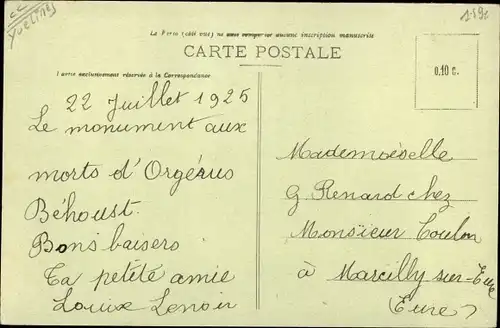 Yvelines
La Perce (côté vue) ne peut recevoir aucune inscription manuscrite
CARTE POSTALE
Partie exclusivement réservée à la Correspondance
0.10 c.
22 Juillet 1925
Le monument aux
morts d'Orgérus
Béhoust.
Bons baisers
Ta petite amie
Louise Lenoir
Mademoiselle
G. Renard chez
Monsieur Toulon
à Marcilly-sur-Eure
(Eure)